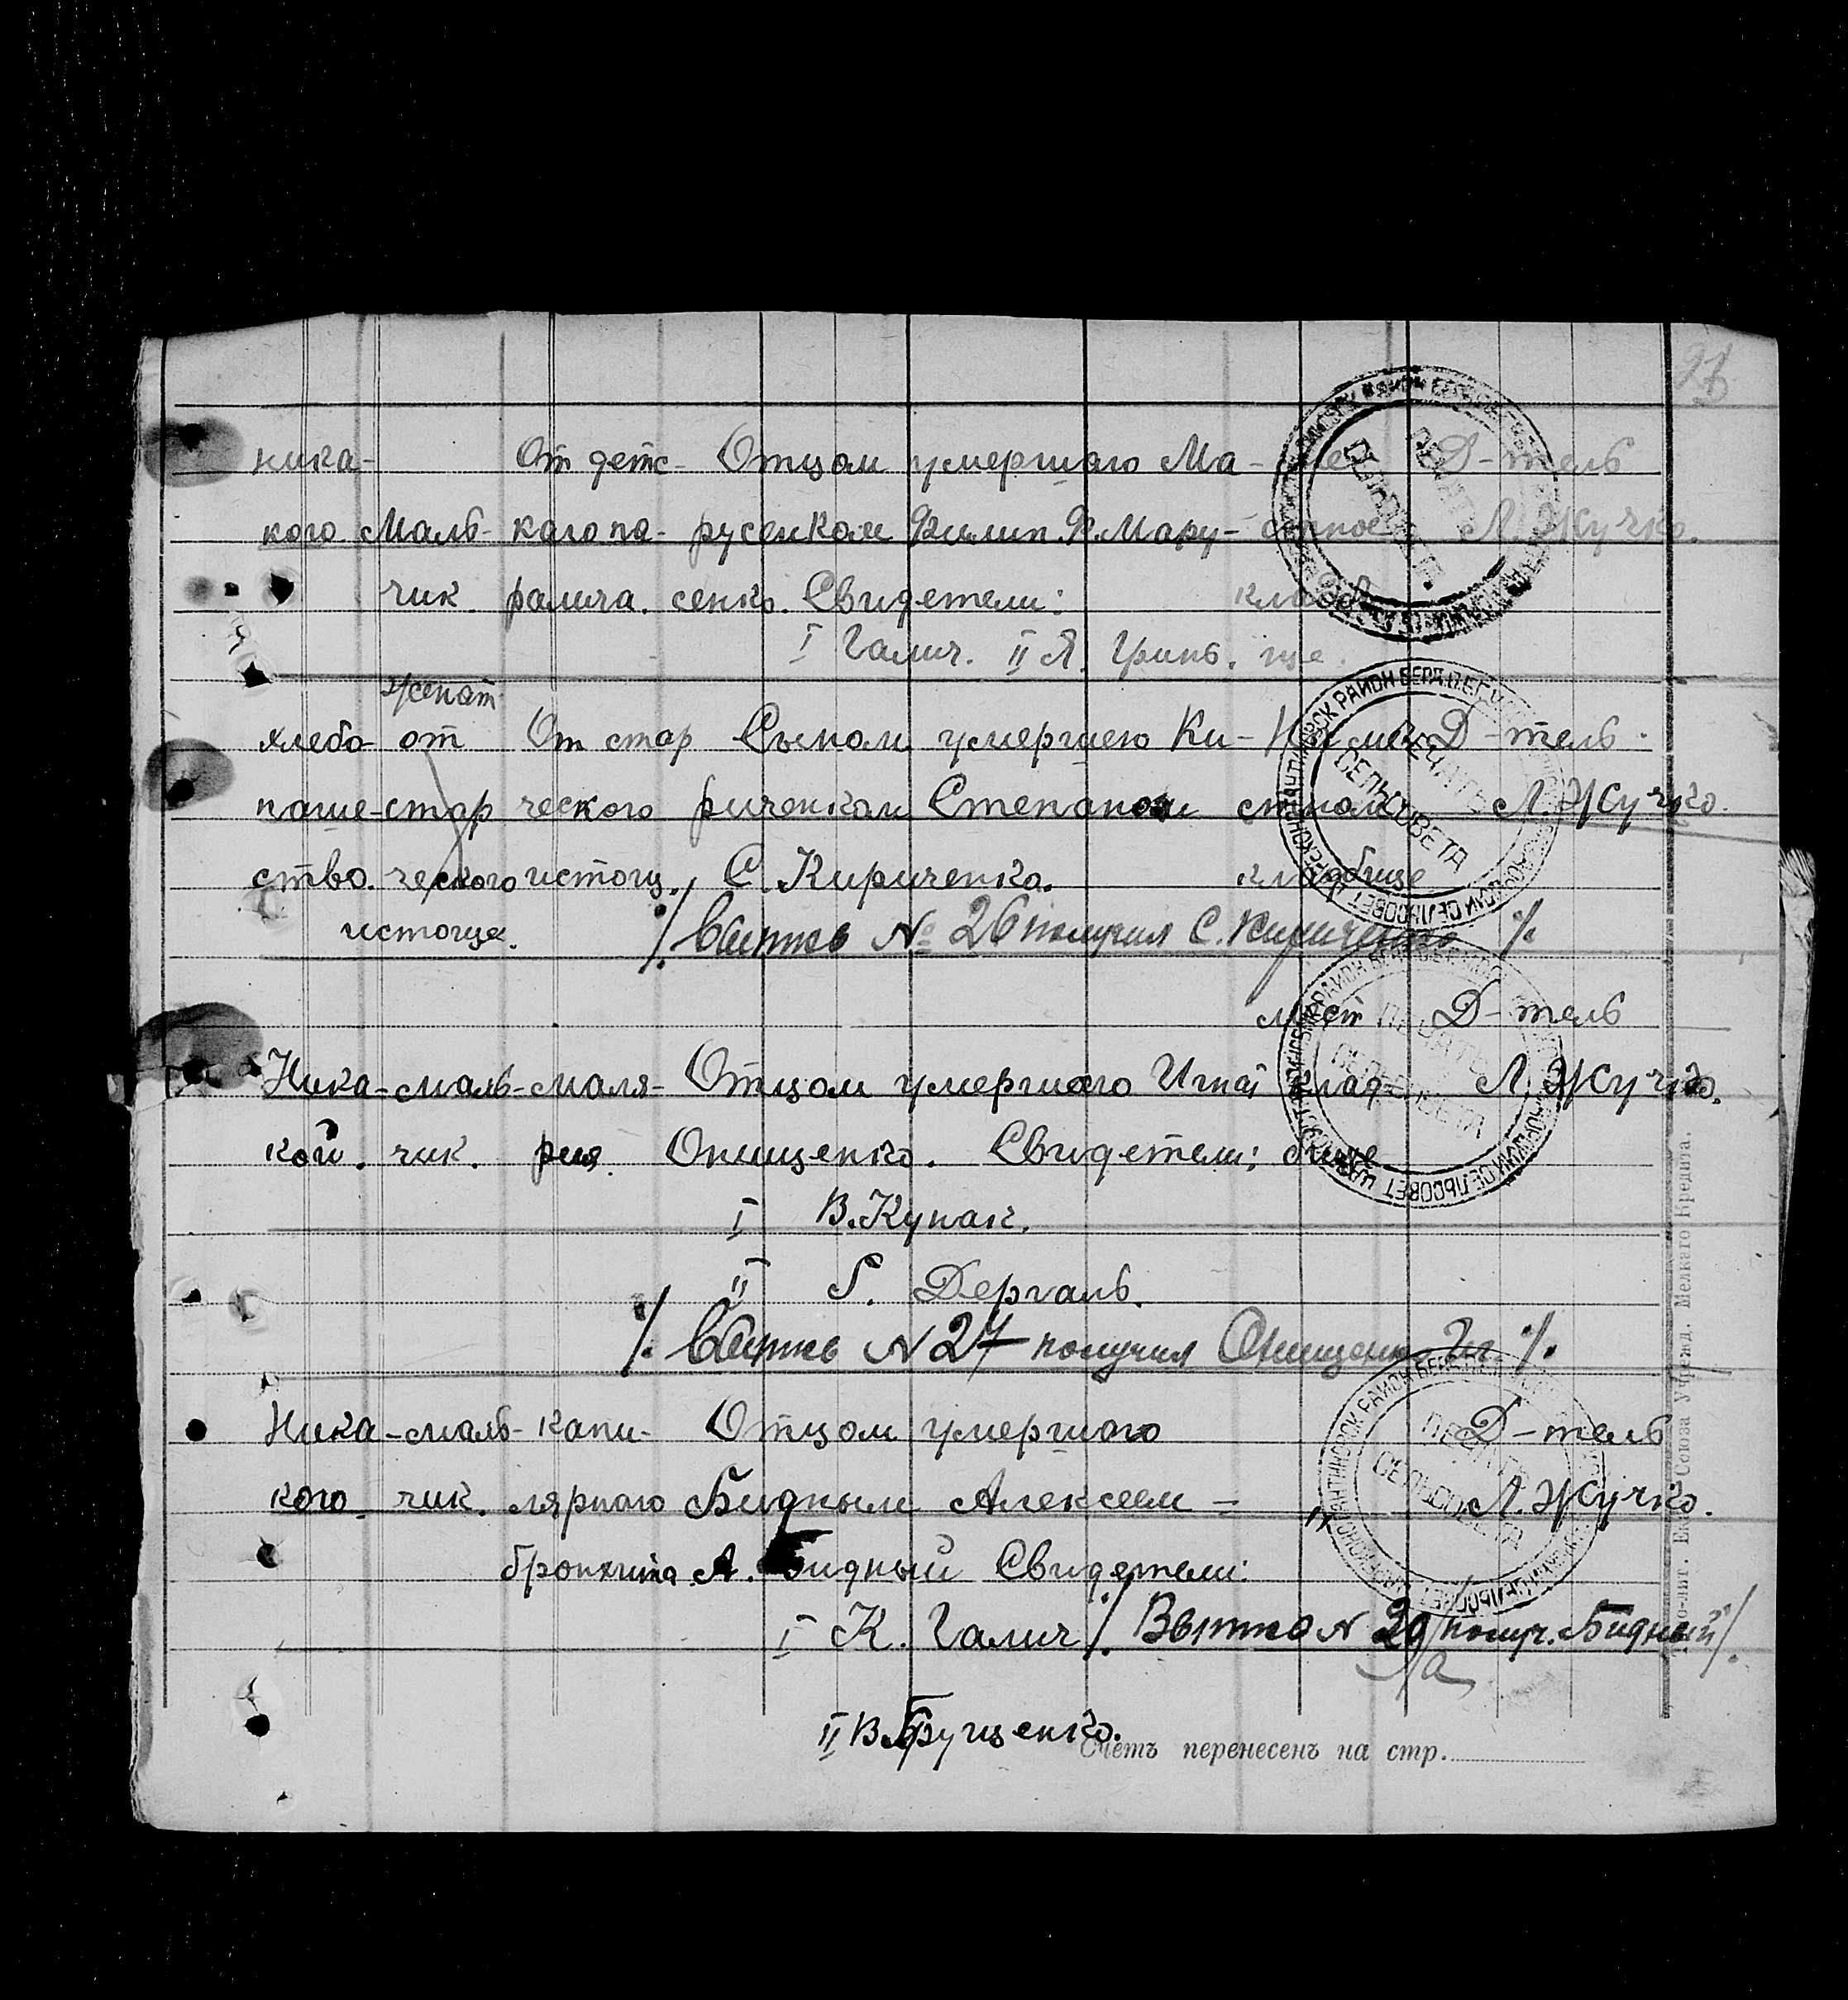 ника- От детс- Отцом умершого Ма- Д-тель
кого Маль- каго па- русенком Филип. Ф. Мару- Л. Жучко.
чик ралича. сенко. Свидетели: клад
I Галич. II Я. Гринь. ще.
женат
хлебо- от От стар Сыном умершею Ки- Д-тель.
паше- стар ческого риченком Степаном Л. Жучко.
ство. ческого истощ. С. Кириченко. кладбище
истоще. ٪ Выпись № 26 получил С. Кириченко ٪
мест Д-тель
Ника- маль- маля- Отцом умершаго Игнат клад- Л. Жучко.
кой. чик. рия. Онищенко. Свидетели: бище
I В. Купач.
II Дергаль.
٪ Выпись № 27 получил Онищенко Иг. ٪
Ника- маль- капи- Отцом умершого Д-тель
кого. чик. лярного Бидным Алексеем - Л. Жучко.
бронхита. А. Бидный Свидетели:
I К. Галич ٪ Выпись № получ. Бидный ٪
II В. Грущенко.
Счетъ перенесенъ на стр.
ПЕЧАТЬ СЕЛЬСОВЕТА
Союза Учрежд. Мелкаго Кредита.